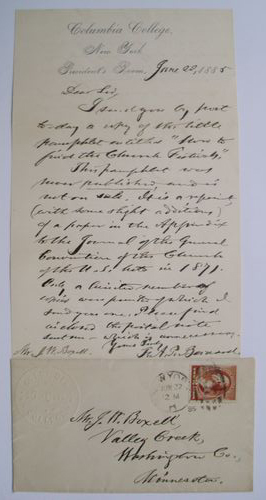 Columbia College,
New York
President's Room, June 22, 1885
Dear Sir,
I send you by post
to-day a copy of the little
pamphlet entitled "How to
find the Church Festivals."
This pamphlet was
never published and is
not on sale. It is a reprint
(with some slight additions)
of a paper in the Appendix
to the Journal of the General
Convention of the Church
of the U.S. held in 1871.
Only a limited number of
copies was printed of which I
send you one. Please find
inclosed the postal note
sent me which is unnecessary.
Yours truly,
F. A. P. Barnard
Mr. J. W. Boxell
Mr. J. W. Boxell,
Valley Creek,
Washington Co.,
Minnesota.